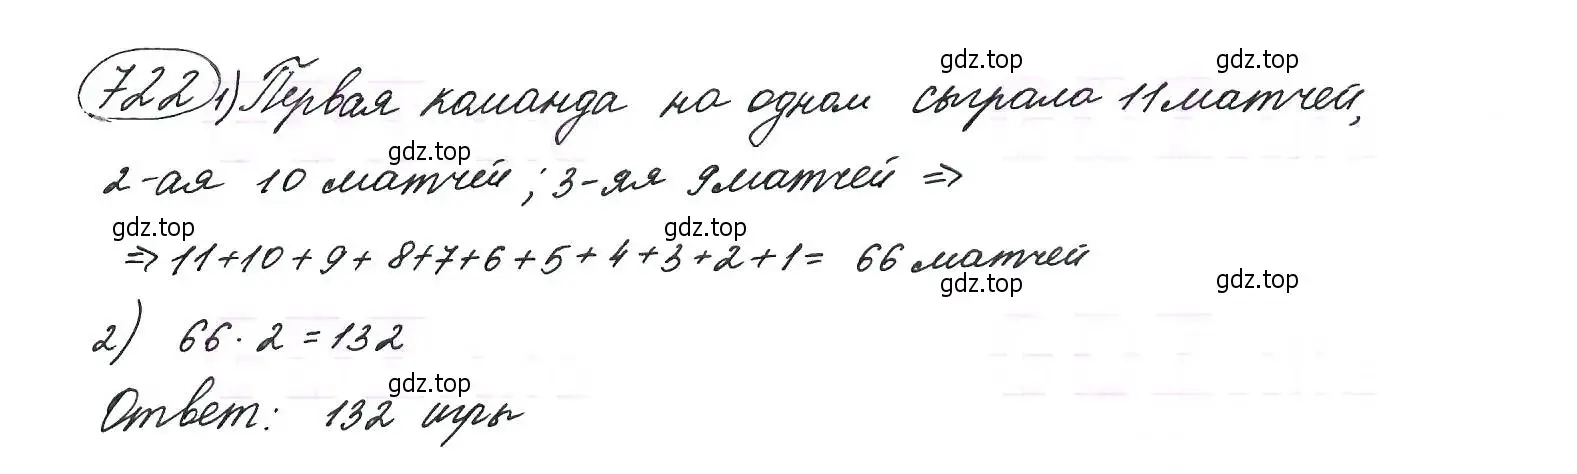 722 1) Первая команда на одном сыграла 11 матчей,
gdz.top gdz.top
gdz.top
2-ая 10 матчей; 3-яя 9 матчей =>
gdz.top gdz.top
=> 11+10+9+8+7+6+5+4+3+2+1= 66 матчей
gdz.top gdz.top
2) 66·2=132
gdz.top
Ответ: 132 игры